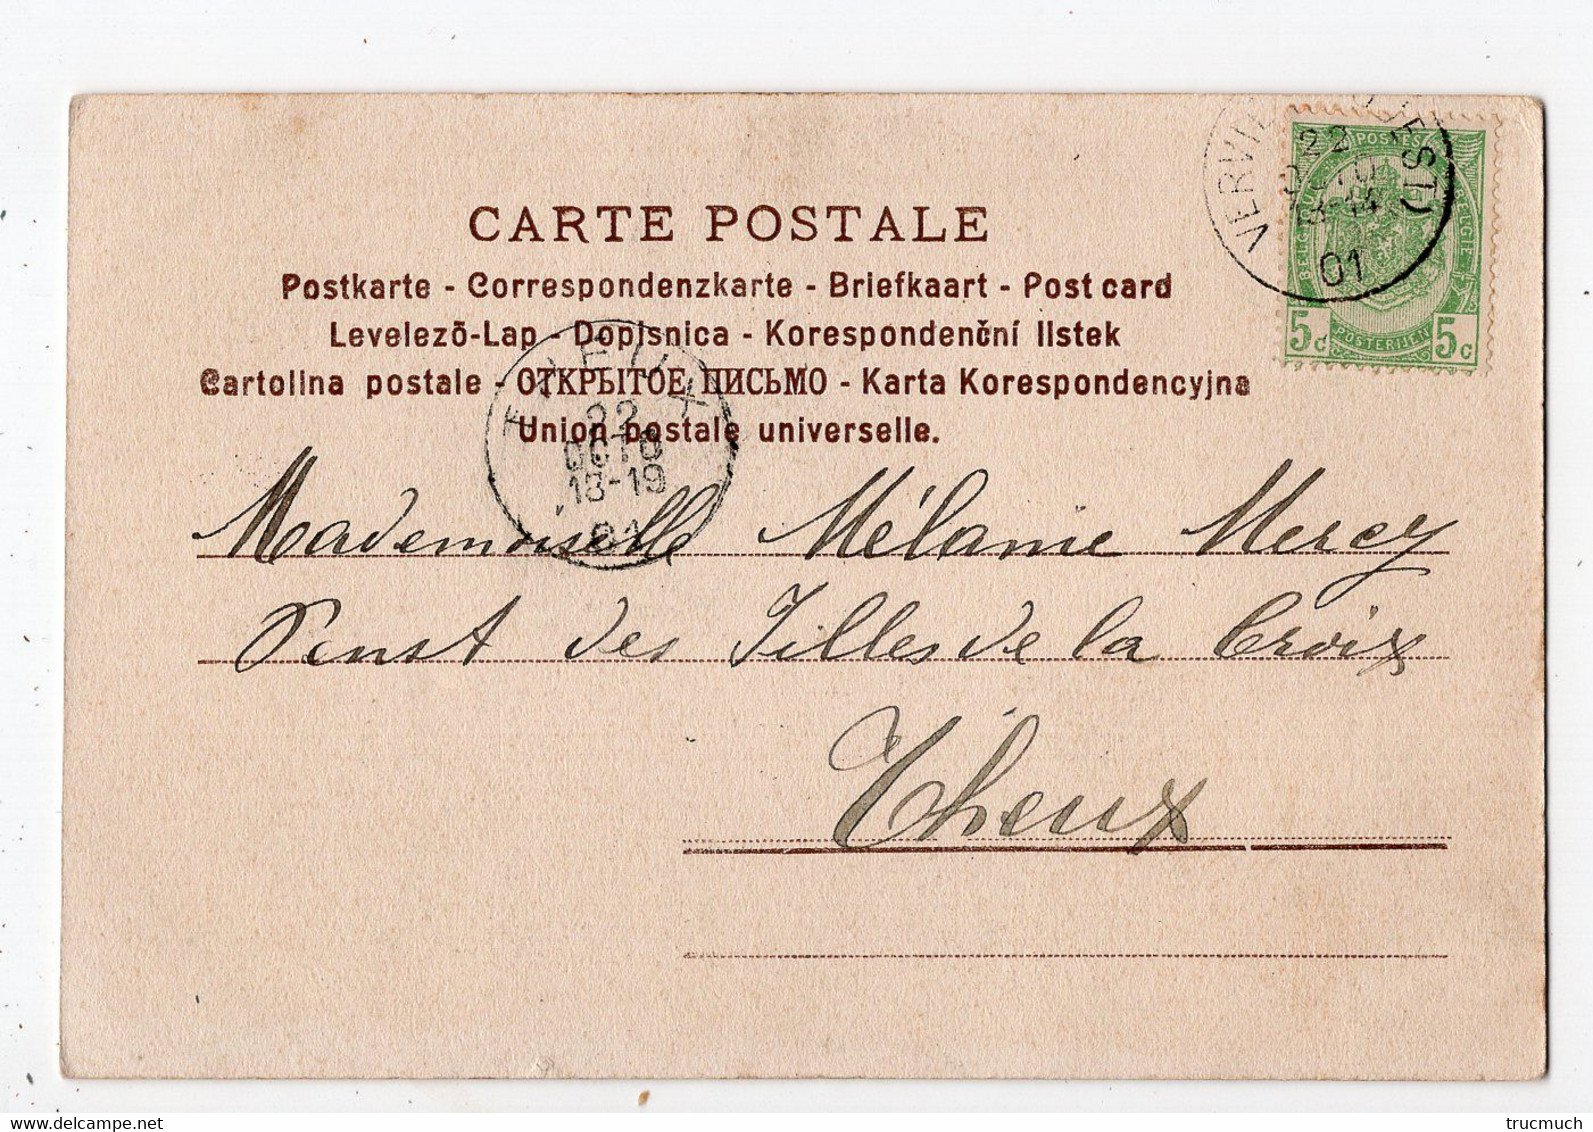 CARTE POSTALE
Postkarte - Correspondenzkarte - Briefkaart - Post card
Levelező-Lap - Dopisnica - Korespondenční lístek
Cartolina postale - ОТКРЫТОЕ ПИСЬМО - Karta Korespondencyjna
Union postale universelle.
VERVIE OUEST)
22
13-14
01
POSTES
BELGIQUE BELGIE
POSTERIJEN
5c 5c
THEUX
22
OCTO
18-19
01
Mademoiselle Mélanie Mercy
Penst des Filles de la Croix
Theux
DelcampE.net
trucmuch